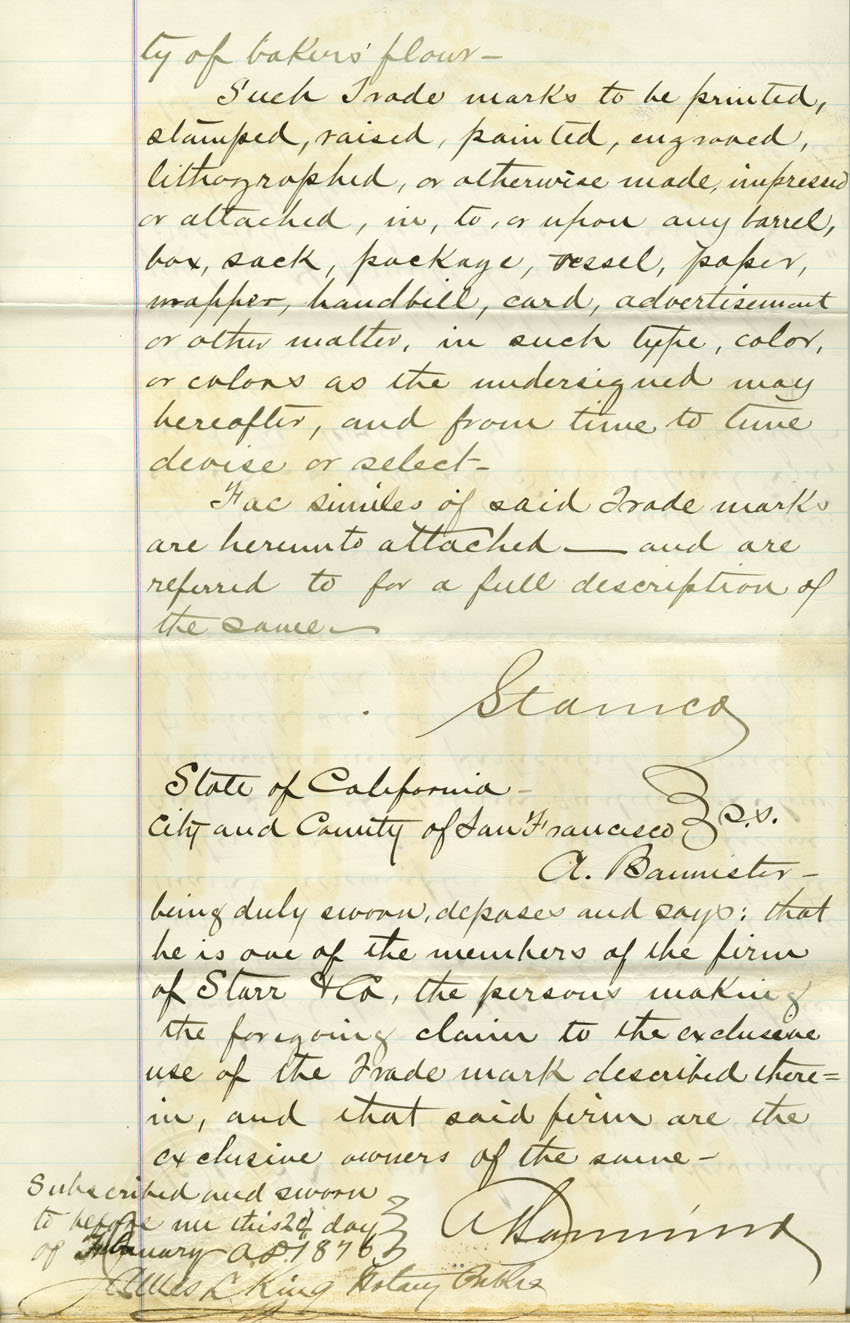 ty of bakers' flour—
Such Trade marks to be printed,
stamped, raised, painted, engraved,
lithographed, or otherwise made, impressed
or attached, in, to, or upon any barrel,
box, sack, package, vessel, paper,
wrapper, handbill, card, advertisement
or other matter, in such type, color,
or colors as the undersigned may
hereafter, and from time to time
devise or select—
Fac similes of said Trade marks
are hereunto attached — and are
referred to for a full description of
the same—
State of California —
City and County of San Francisco } s.s.
A. Bannister —
being duly sworn, deposes and says: that
he is one of the members of the firm
of Starr & Co, the persons making
the foregoing claim to the exclusive
use of the Trade mark described there=
in, and that said firm are the
exclusive owners of the same —
Subscribed and sworn
to before me this day
of February A.D. 1876
James L. King Notary Public